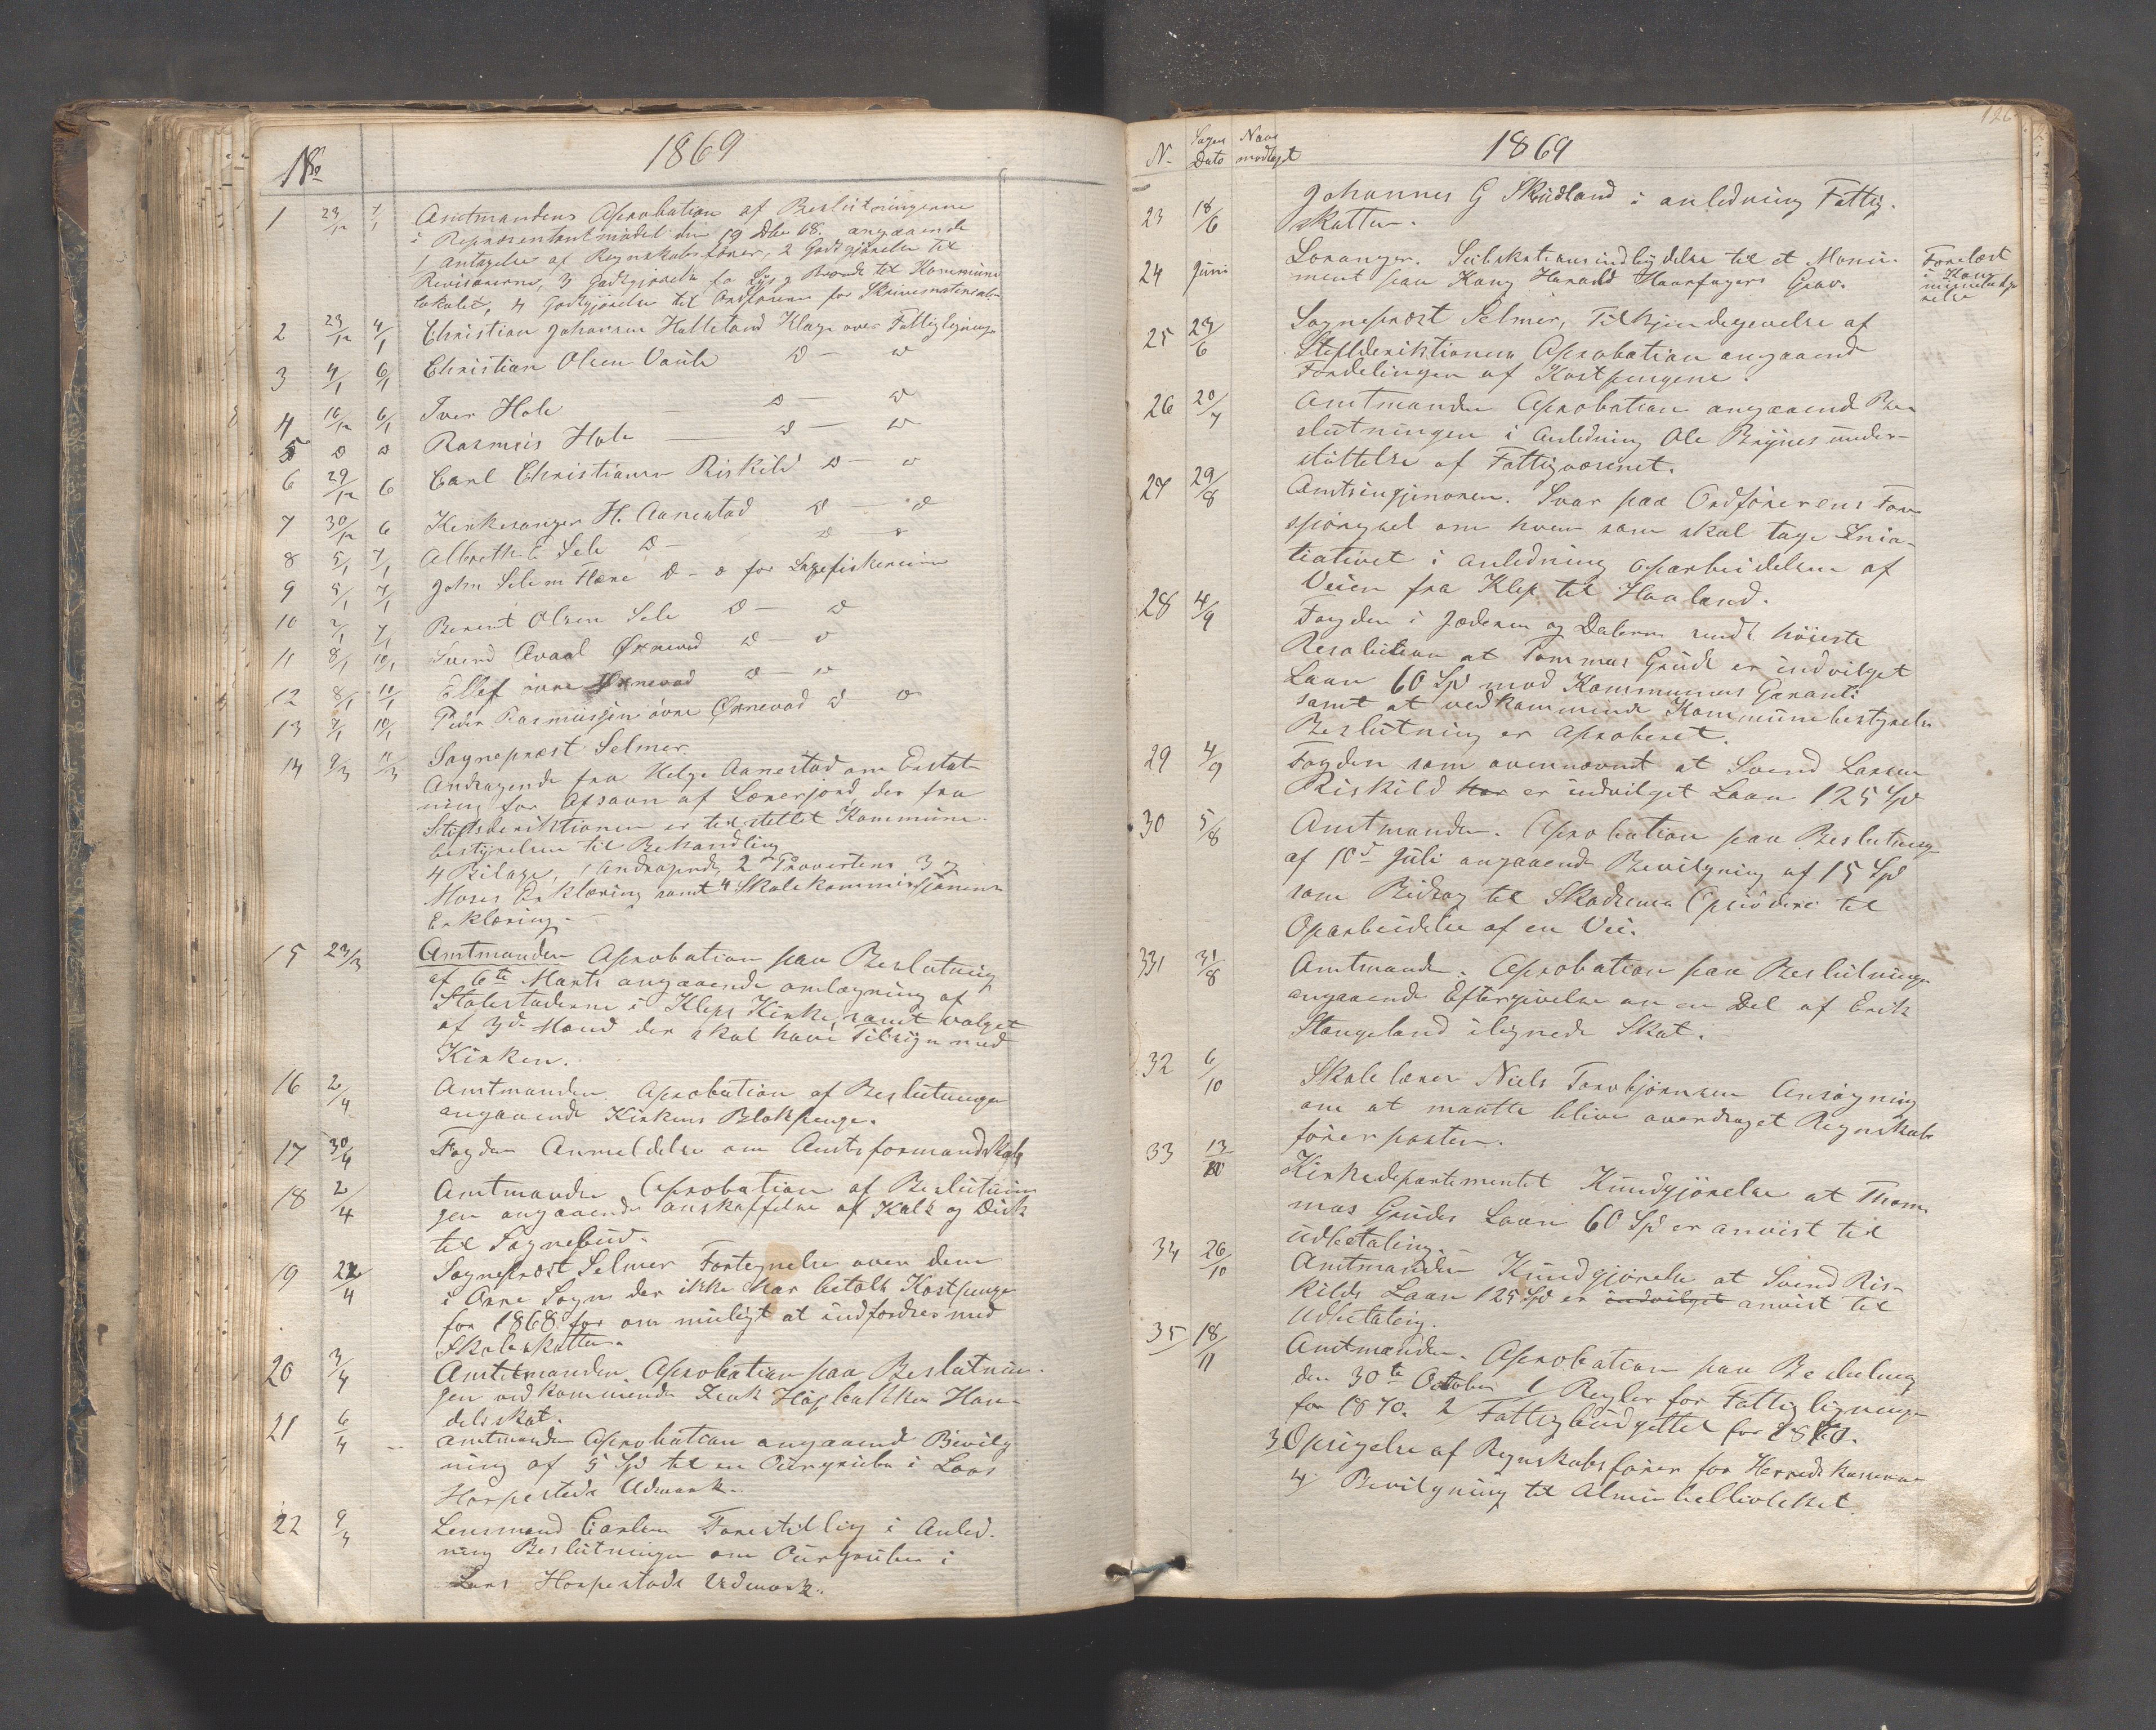 No 1869
1 23/12 7/1 Amtmandens Aprobation af Beslutningerne
i Repræsentantmödet den 19 Dbr 68. angaaende
1/ Antagelse af Regnskabsförer, 2 Godtgjörelse til
Revisorerne, 3 Godtgjörelse for Lys og Brænde til Kommune
lokalet, 4 Godtgjörelse til Ordföreren for Skrivematerialer
2 23/12 4/1 Christian Johansen Halleland Klage over Fattigligninge
3 4/1 6/1 Christian Olsen Vaule D — o
4 16/12 6/1 Iver Hole D — o
5 D D Rasmus Hole D — o
6 29/12 6 Carl Christiansen Riskild D — o
7 30/12 6 Kirkesanger H. Aanestad D — o
8 5/1 7/1 Albretth E Sele D — D o
9 5/1 7/1 John Selem Hære D - o for Laxefiskerierne
10 2/1 7/1 Berent Olsen Sele D — D
11 8/1 10/1 Svend Avaal Øxnevad D — o
12 8/1 10/1 Ellef övre Øxnevad D — o
13 7/1 10/1 Peder Rasmussen övre Øxnevad D o
14 9/3 11/3 Sognepræst Selmer.
Andragende fra Helge Aanestad om Erstat-
ning for Afsavn af Lærerjord, der fra
Stiftsderiktionen er tilstellet Kommune-
bestyrelsen til Behandling
4 Bilage, 1 Andragende, 2 Provstens 3
Moses Erklæring samt 4 Skolekommissjonens
Erklæring.
15 23/3 Amtmanden Aprobation paa Beslutning
af 6te Marts angaaende omlægning af
Stolestaderne i Klepp Kirke, samt valget
af 3de Mand der skal have Tilsyn med
Kirken.
16 2/4 Amtmanden. Aprobation af Beslutninger
angaaende Kirkens Blokpenge.
17 30/4 Fogden Anmeldelse om Amtsformandskab
18 2/4 Amtmanden Aprobation af Beslutnin
gen angaaende anskaffelse af Kalk og Disk
til Sognebud.
19 22/4 Sognepræst Selmer Fortegnelse over dem
i Orre Sogn der ikke har betalt Kostpenge
for 1868 for om muligt at indfordres med
Skoleskatten.
20 3/4 Amtmanden. Aprobation paa Beslutnin-
gen vedkommende Han-
delsskat.
21 6/4 Amtmanden Aprobation angaaend Bevilg
ning af 5 Spd til en Ourgrube i Lars
Horpestads Udmark.
22 9/4 Lensmand Carlsen Forestilling i Anled-
ning Beslutningen om Ourgruben i
Lars Horpestads Udmark.
N. Sagens Dato Naar modtaget 1869
23 18/6 Johannes G Skudland i anledning Fattig-
skatten.
24 Juni Subskribtionsindbydelse til et Monu-
ment paa Kong Harald Haarfagers Grav.
Forelæst
i Kom
25 23/6 Sognepræst Selmer, Tilkjendegivelse af
Stiftderiktionens Aprobation angaaend
Fordelingen af Kostpengene.
26 20/7 Amtmanden Aprobation angaaend Be-
slutningen i Anledning Ole Brynes under-
stöttelse af Fattigvæsenet.
27 29/8 Amtsingjenören. Svar paa Ordförerens For-
spörgsel om hvem som skal tage Inia-
tiativet i anledning oparbeidelsen af
Veien fra Klep til Haaland.
28 4/9 Fogden i Jæderen og Dalerne sendt höieste
Resolution at Tommas Grude er indvilget
Laan 60 Spd mod Kommunens Garanti
samt at vedkommende Kommunebestyrelse
Beslutning er Aproberet.
29 4/9 Fogden som ovennævnt at Svend Larsen
Riskild har er indvilget Laan 125 Spd
30 5/8 Amtmanden. Aprobation paa Beslutning
af 10de Juli angaaende Bevilgning af 15 Spd
som Bidrag til Skadsem til
Oparbeidelse af en Vei.
31 31/8 Amtmanden. Aprobation paa Beslutninge
angaaende Eftergivelse av en Del af Erik
Stangeland ilignede Skat.
32 6/10 Skolelærer Niels Torbjörnsen Ansögning
om at maatte blive overdraget Regnskabs
förerposten.
33 13/10 Kirkedepartementet Kundgjörelse at Thom-
mas Grudes Laan 60 Spd er anvist til
Udbetaling.
34 26/10 Amtmanden Kundgjörelse at Svend Ris-
kilds Laan 125 Spd er indvilget anvist til
Udbetaling.
35 18/11 Amtmanden. Aprobation paa Beslutning
den 30te October 1/ Regler for Fattigligninge
for 1870. 2 Fattigbudgettet for 1870.
3 Opsigelse af Regnskabsförer for Herredskassen
4/ Bevilgning til Almuebibliotheket